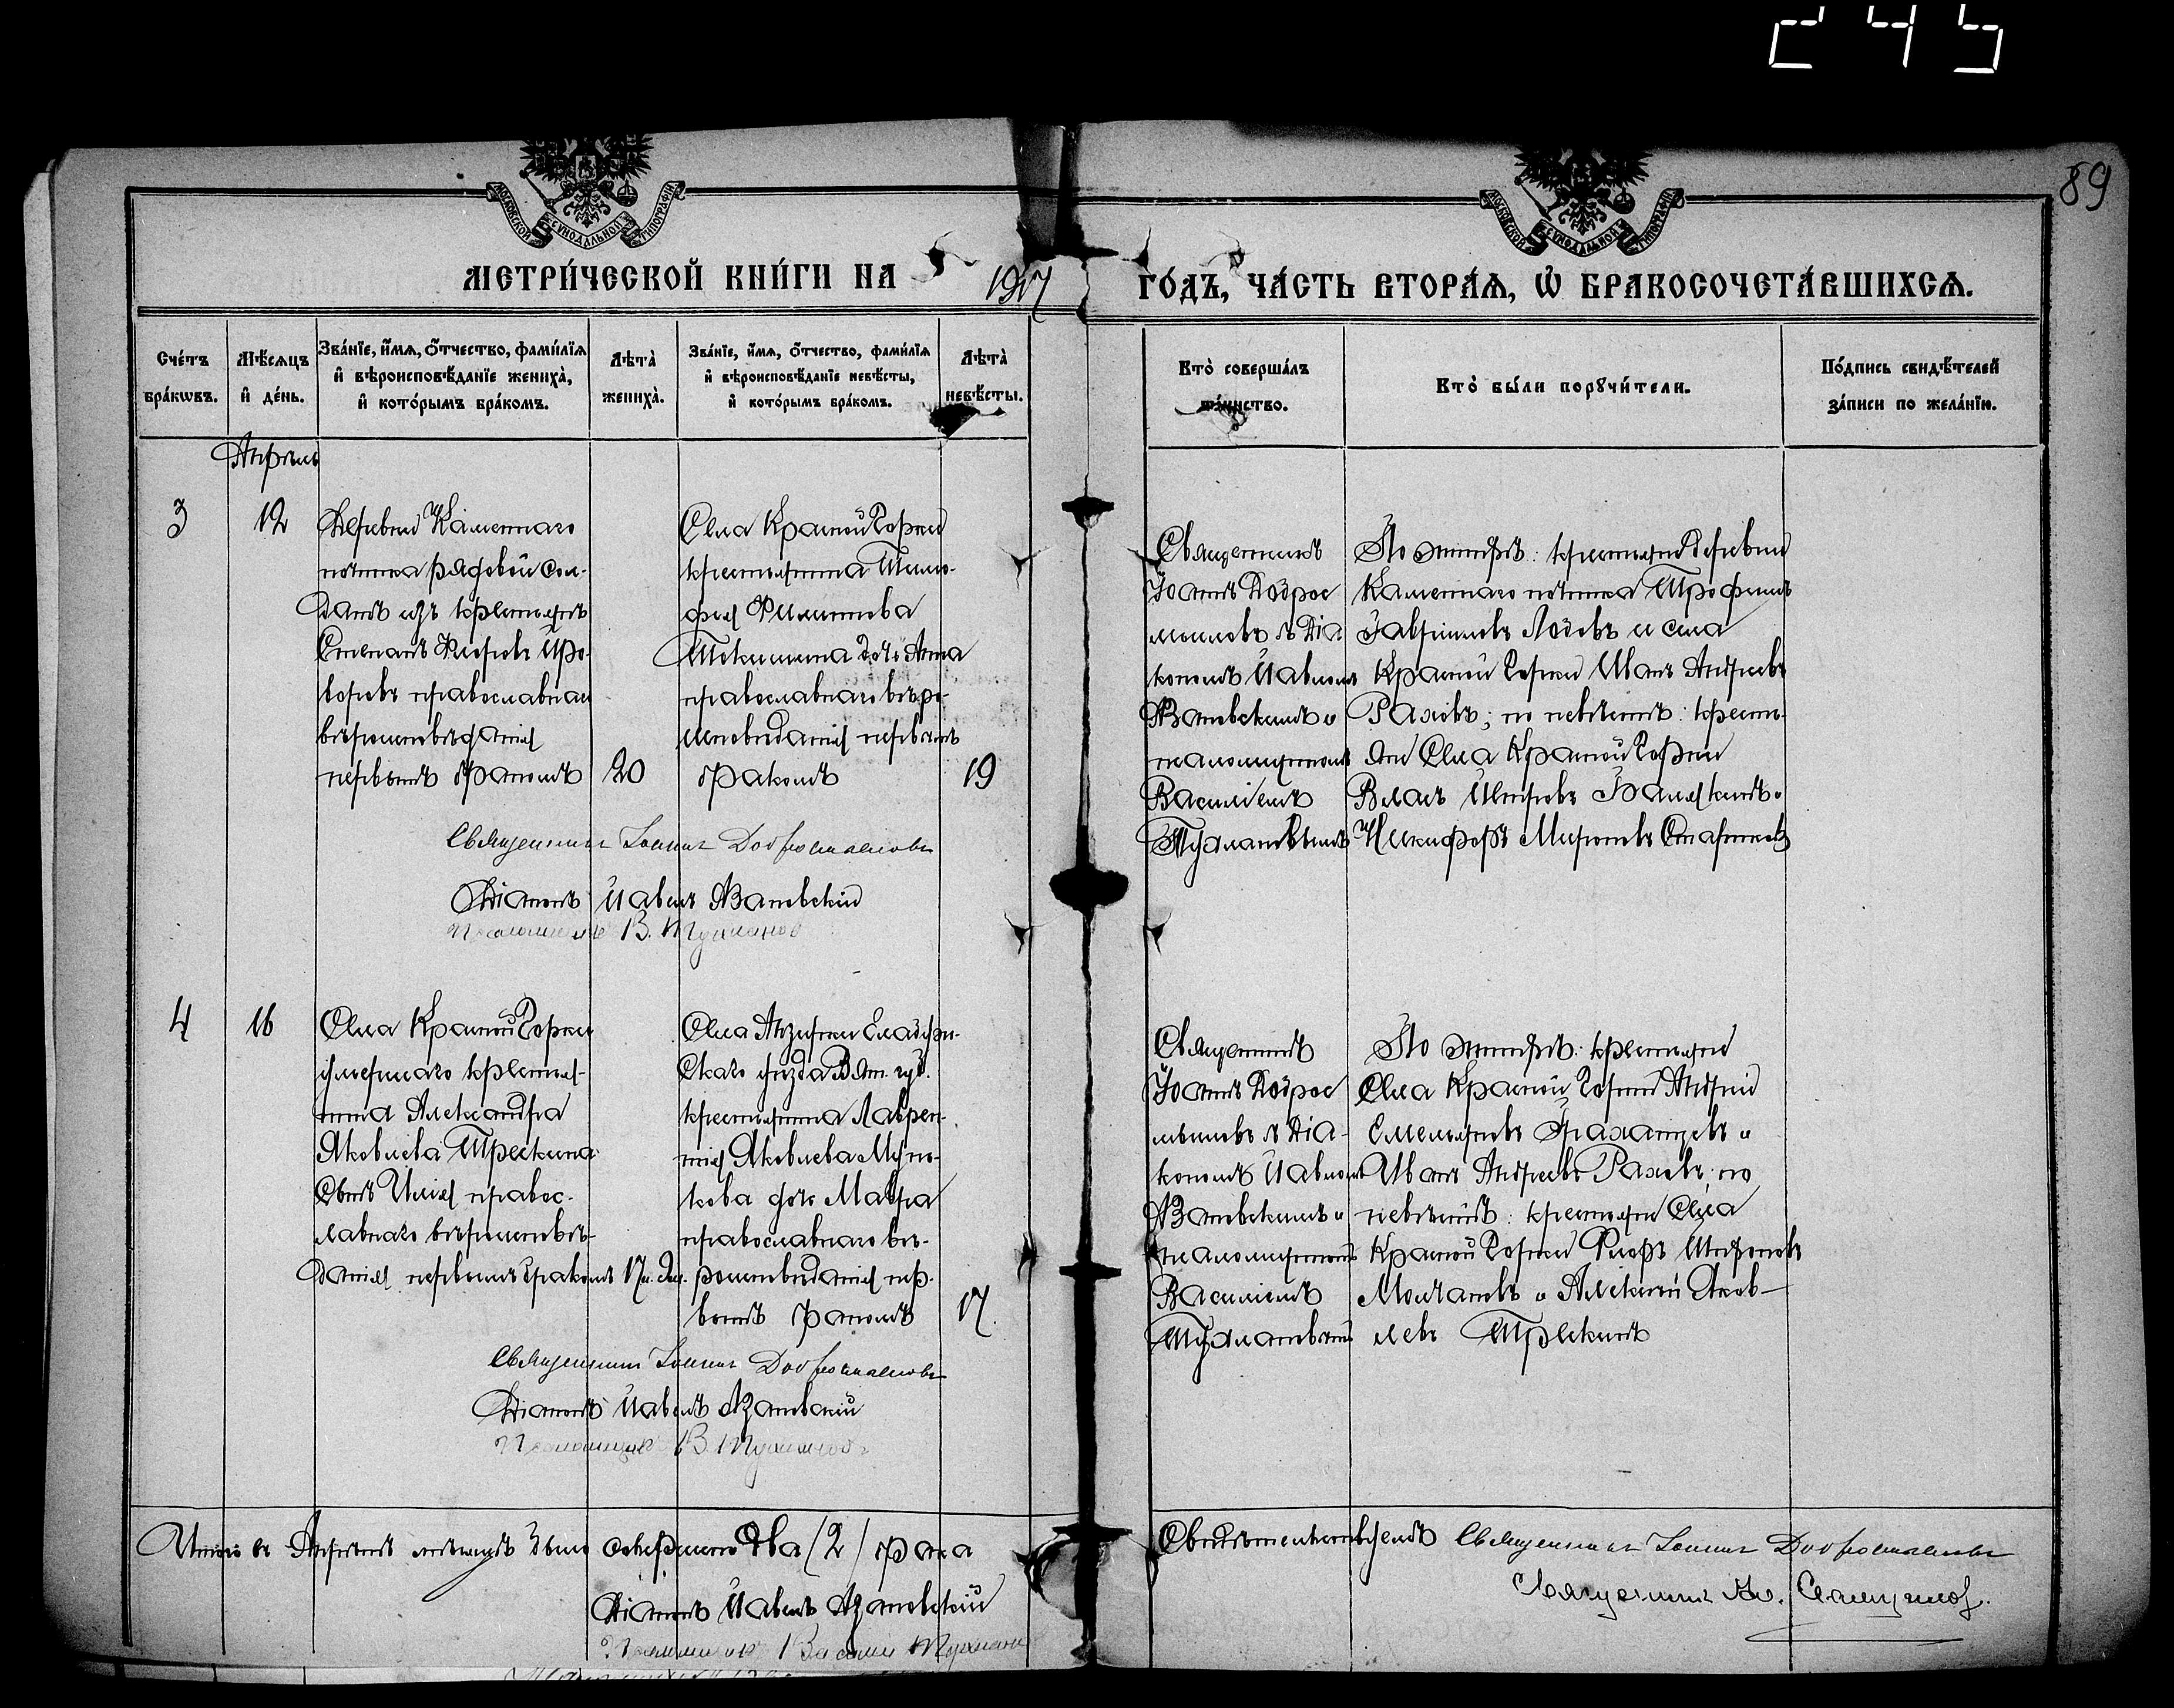 245
89
МОСКОВСКОЙ СУНОДАЛЬНОЙ ТИПОГРАФІИ
МОСКОВСКОЙ СУНОДАЛЬНОЙ ТИПОГРАФІИ
МЕТРИ́ЧЕСКОЙ КНИ́ГИ НА 1917 ГО́ДЪ, ЧА́СТЬ ВТОРА́Я, Ѡ БРАКОСОЧЕТА́ВШИХСЯ.
Сче́тъ бра́кѡвъ.
Мѣ́сяцъ и де́нь.
Зва́нїе, и́мя, о́тчество, фами́лїя и вѣроисповѣ́данїе жениха̀, и кото́рымъ бра́комъ.
Лѣта̀ жениха̀.
Зва́нїе, и́мя, о́тчество, фами́лїя и вѣроисповѣ́данїе невѣ́сты, и кото́рымъ бра́комъ.
Лѣта̀ невѣ́сты.
Кто̀ соверша́лъ та́инство.
Кто̀ бы́ли порꙋчи́тели.
По́дпись свидѣ́телей за́писи по жела́нїю.
Апрѣль
3
12
Деревни Каменнаго
починка рядовой сол-
датъ изъ крестьянъ
Степанъ Флоровъ
православнаго
вѣроисповѣданія
первымъ бракомъ
20
Села Красной Горки
крестьянина Тимо-
фея Филиппова
дочь Анна
православнаго вѣро-
исповѣданія первымъ
бракомъ
19
Священникъ
Іоаннъ Доброс
мысловъ съ діа
кономъ Павломъ
Азановскимъ и
псаломщикомъ
Василіемъ
Тухлановымъ
По женихѣ: крестьяне деревни
Каменнаго починка Трофимъ
Гавріиловъ Лобовъ и села
Красной Горки Иванъ Андреевъ
Раховъ; по невѣстѣ: кресть-
яне Села Красной Горки
Власъ Петровъ и
Никифоръ Мироновъ Стариковъ
Священникъ Іоаннъ Добросмысловъ
Діаконъ Павелъ Азановскій
Псаломщикъ В. Тухланов
4
16
Села Красной Горки
умершаго крестья-
нина Александра
Яковлева Трескина
сынъ Илія правос-
лавнаго вѣроисповѣ-
данія первымъ бракомъ
Села Анзирки Елабуж-
скаго уѣзда Вят. губ.
крестьянина Лаврен-
тія Яковлева
дочь Мавра
православнаго вѣ-
роисповѣданія пер-
вымъ бракомъ
17.
Священникъ
Іоаннъ Доброс
мысловъ съ діа-
кономъ Павломъ
Азановскимъ и
псаломщикомъ
Василіемъ
Тухлановымъ
По женихѣ: крестьяне
Села Красной Горки Андрей
Емельяновъ и
Иванъ Андреевъ Раховъ; по
невѣстѣ: крестьяне Села
Красной Горки Флоръ
Молчановъ и Алексѣй Яков-
левъ Трескинъ
Священникъ Іоаннъ Добросмысловъ
Діаконъ Павелъ Азановскій
Псаломщикъ В Тухланов
Итого въ Апрѣлѣ мѣсяцѣ было совершено два /2/ брака
Діаконъ Павелъ Азановскій
Псаломщикъ Василий Тухланов
Свидѣтельствуемъ Священникъ Іоаннъ Добросмысловъ
Священникъ